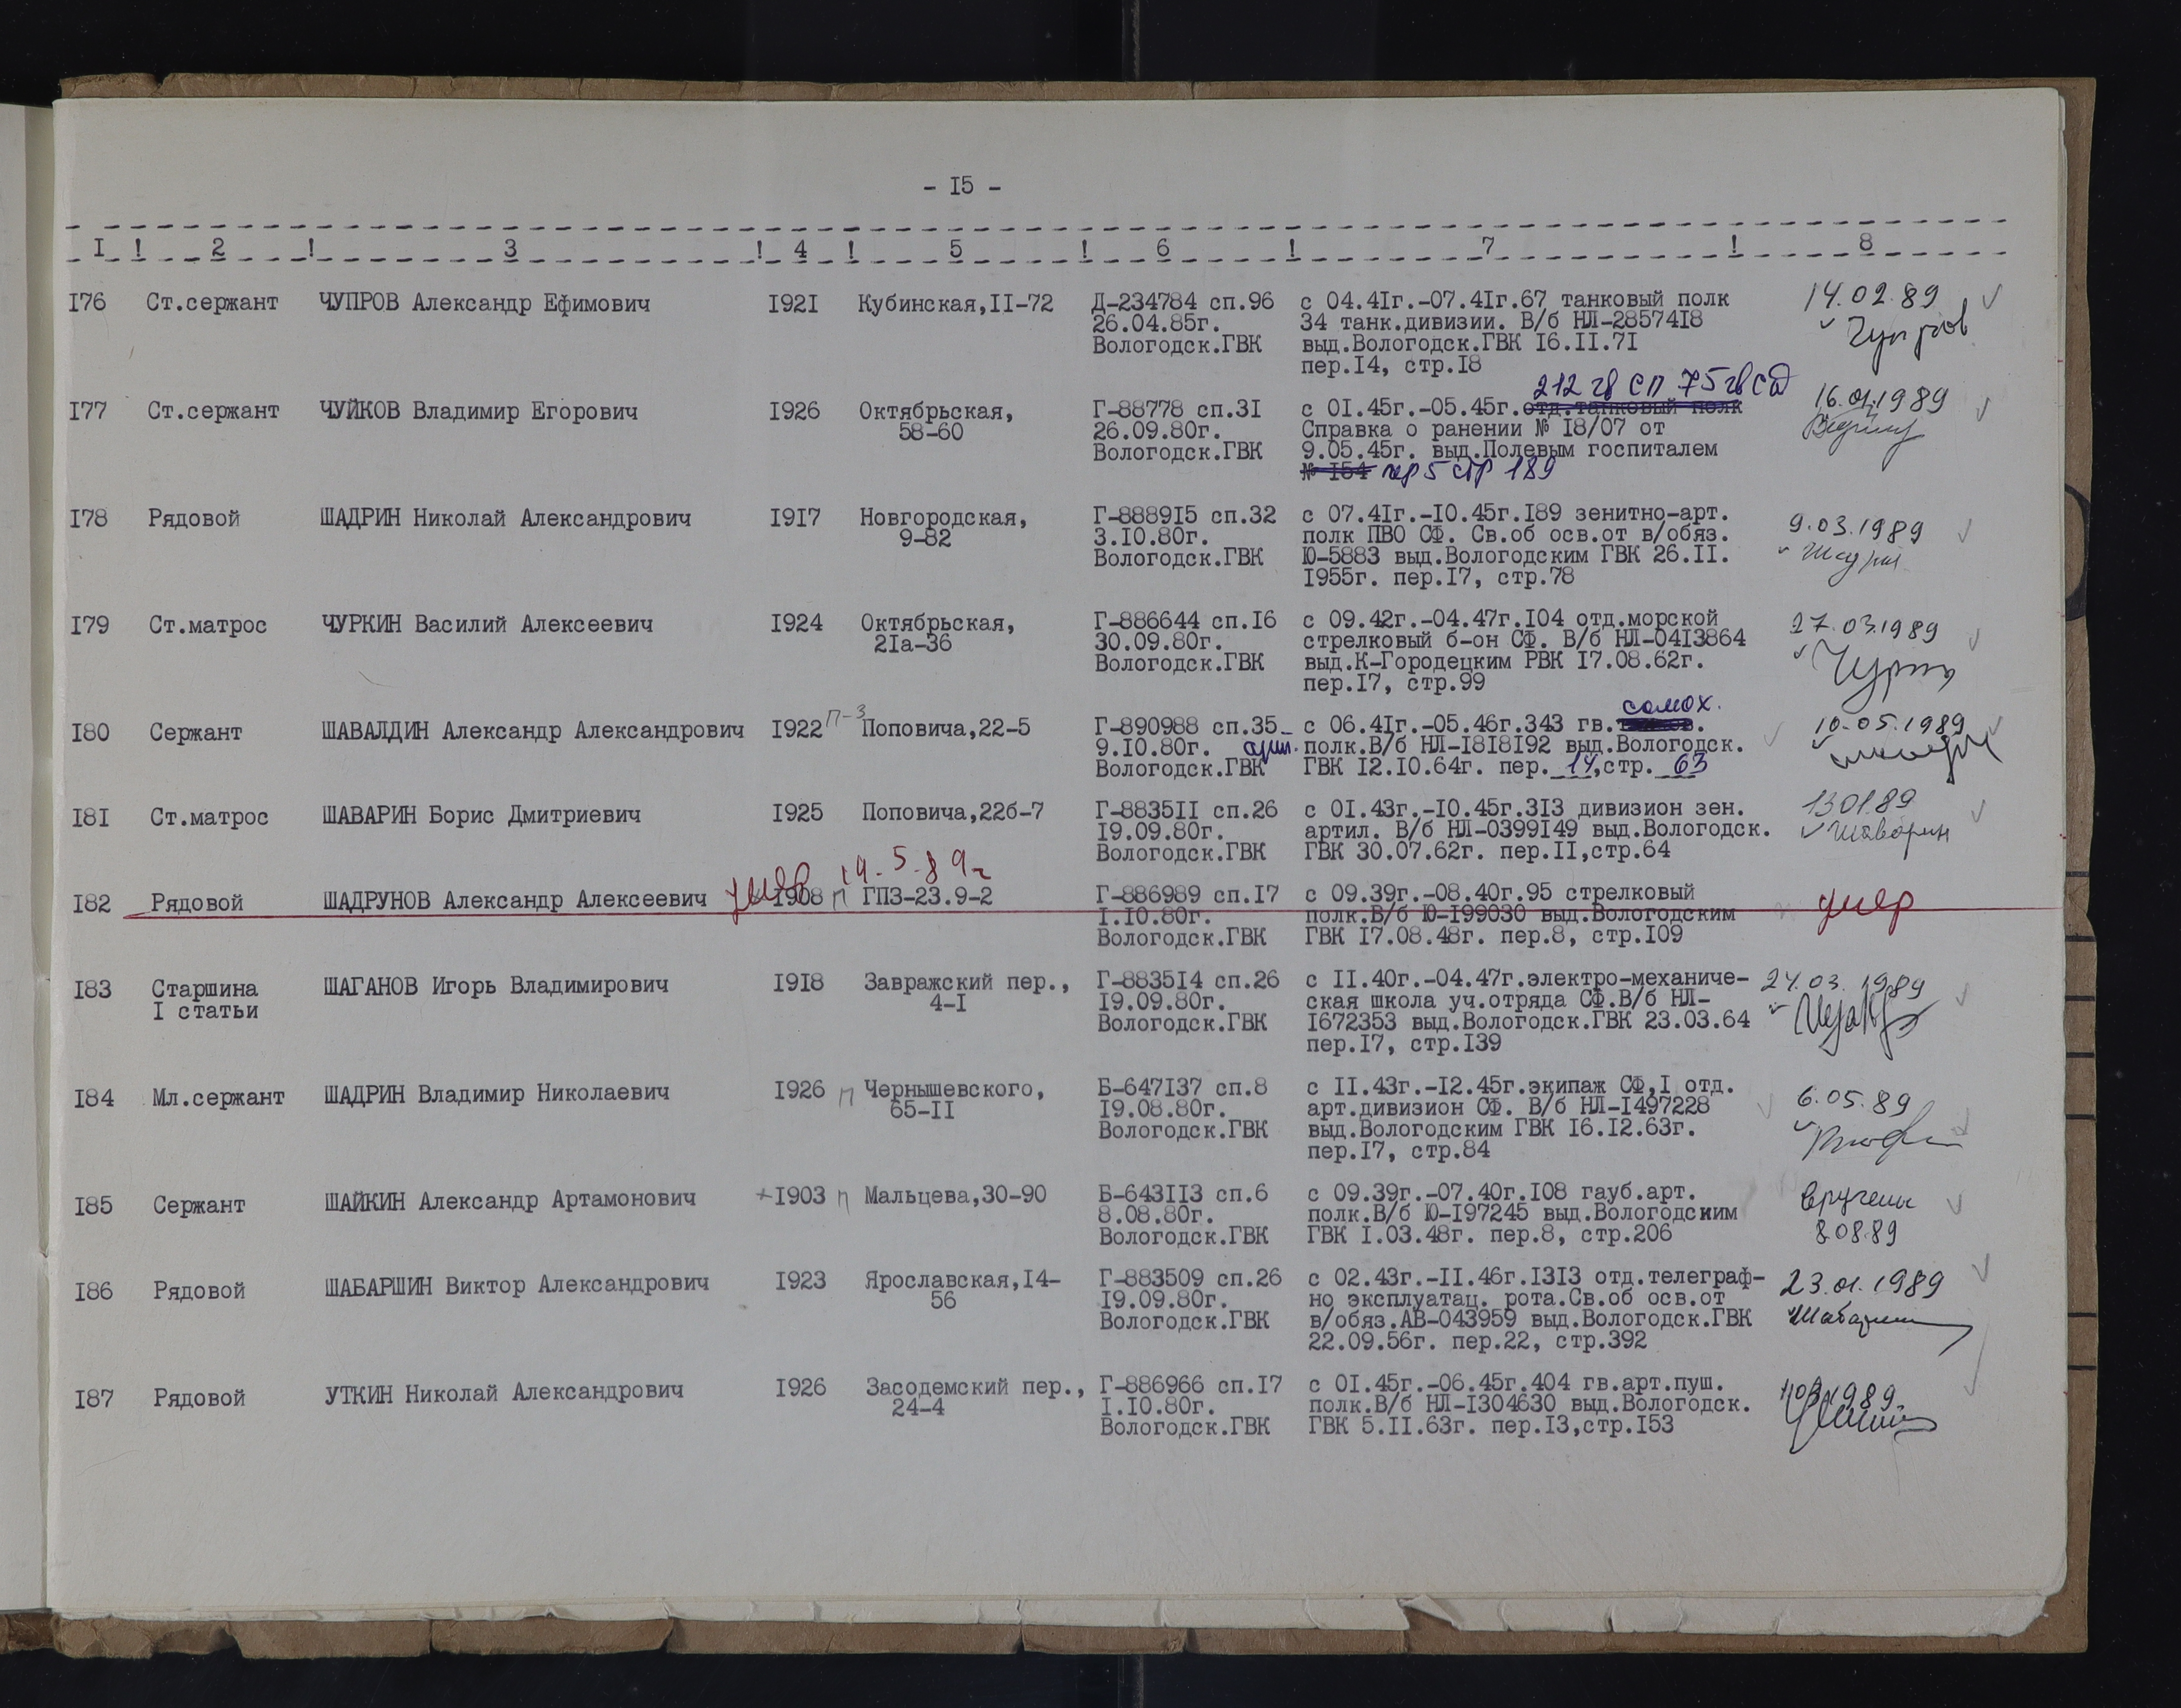 - I5 -
I ! 2 ! 3 ! 4 ! 5 ! 6 ! 7 ! 8
I76 Ст.сержант ЧУПРОВ Александр Ефимович I92I Кубинская,II-72 Д-234784 сп.96 с 04.4Iг.-07.4Iг.67 танковый полк 14.02.89
26.04.85г. 34 танк.дивизии. В/б НЛ-28574I8 Чупров
Вологодск.ГВК выд.Вологодск.ГВК I6.II.7I
пер.I4, стр.I8
212 гв СП 75 гв СД
I77 Ст.сержант ЧУЙКОВ Владимир Егорович I926 Октябрьская, Г-88778 сп.3I с 0I.45г.-05.45г.отд.танковый полк 16.01.1989
58-60 26.09.80г. Справка о ранении № I8/07 от
Вологодск.ГВК 9.05.45г. выд.Полевым госпиталем
№ I54 пер 5 стр 189
I78 Рядовой ШАДРИН Николай Александрович I9I7 Новгородская, Г-8889I5 сп.32 с 07.4Iг.-I0.45г.I89 зенитно-арт. 9.03.1989
9-82 3.I0.80г. полк ПВО СФ. Св.об осв.от в/обяз.
Вологодск.ГВК Ю-5883 выд.Вологодским ГВК 26.II. Шадрин
I955г. пер.I7, стр.78
I79 Ст.матрос ЧУРКИН Василий Алексеевич I924 Октябрьская, Г-886644 сп.I6 с 09.42г.-04.47г.I04 отд.морской 27.03.1989
2Iа-36 30.09.80г. стрелковый б-он СФ. В/б НЛ-04I3864
Вологодск.ГВК выд.К-Городецким РВК I7.08.62г.
пер.I7, стр.99
самох.
I80 Сержант ШАВАЛДИН Александр Александрович I922 П-3 Поповича,22-5 Г-890988 сп.35 с 06.4Iг.-05.46г.343 гв. 10.05.1989
9.I0.80г. арт. полк.В/б НЛ-I8I8I92 выд.Вологодск.
Вологодск.ГВК ГВК I2.I0.64г. пер. 14,стр. 63
I8I Ст.матрос ШАВАРИН Борис Дмитриевич I925 Поповича,22б-7 Г-8835II сп.26 с 0I.43г.-I0.45г.3I3 дивизион зен. 130189
I9.09.80г. артил. В/б НЛ-0399I49 выд.Вологодск. Шаварин
Вологодск.ГВК ГВК 30.07.62г. пер.II,стр.64
умер 19.5.89г
I82 Рядовой ШАДРУНОВ Александр Алексеевич I908 П ГПЗ-23.9-2 Г-886989 сп.I7 с 09.39г.-08.40г.95 стрелковый умер
I.I0.80г. полк.В/б Ю-I99030 выд.Вологодским
Вологодск.ГВК ГВК I7.08.48г. пер.8, стр.I09
I83 Старшина ШАГАНОВ Игорь Владимирович I9I8 Завражский пер., Г-8835I4 сп.26 с II.40г.-04.47г.электро-механиче- 24.03.1989
I статьи 4-I I9.09.80г. ская школа уч.отряда СФ.В/б НЛ-
Вологодск.ГВК I672353 выд.Вологодск.ГВК 23.03.64
пер.I7, стр.I39
I84 Мл.сержант ШАДРИН Владимир Николаевич I926 П Чернышевского, Б-647I37 сп.8 с II.43г.-I2.45г.экипаж СФ,I отд. 6.05.89
65-II I9.08.80г. арт.дивизион СФ. В/б НЛ-I497228
Вологодск.ГВК выд.Вологодским ГВК I6.I2.63г.
пер.I7, стр.84
I85 Сержант ШАЙКИН Александр Артамонович +I903 П Мальцева,30-90 Б-643II3 сп.6 с 09.39г.-07.40г.I08 гауб.арт. вручены
8.08.80г. полк.В/б Ю-I97245 выд.Вологодским
Вологодск.ГВК ГВК I.03.48г. пер.8, стр.206 8.08.89
I86 Рядовой ШАБАРШИН Виктор Александрович I923 Ярославская,I4- Г-883509 сп.26 с 02.43г.-II.46г.I3I3 отд.телеграф- 23.01.1989
56 I9.09.80г. но эксплуатац. рота.Св.об осв.от
Вологодск.ГВК в/обяз.АВ-043959 выд.Вологодск.ГВК
22.09.56г. пер.22, стр.392
I87 Рядовой УТКИН Николай Александрович I926 Засодемский пер., Г-886966 сп.I7 с 0I.45г.-06.45г.404 гв.арт.пуш.
24-4 I.I0.80г. полк.В/б НЛ-I304630 выд.Вологодск.
Вологодск.ГВК ГВК 5.II.63г. пер.I3,стр.I53